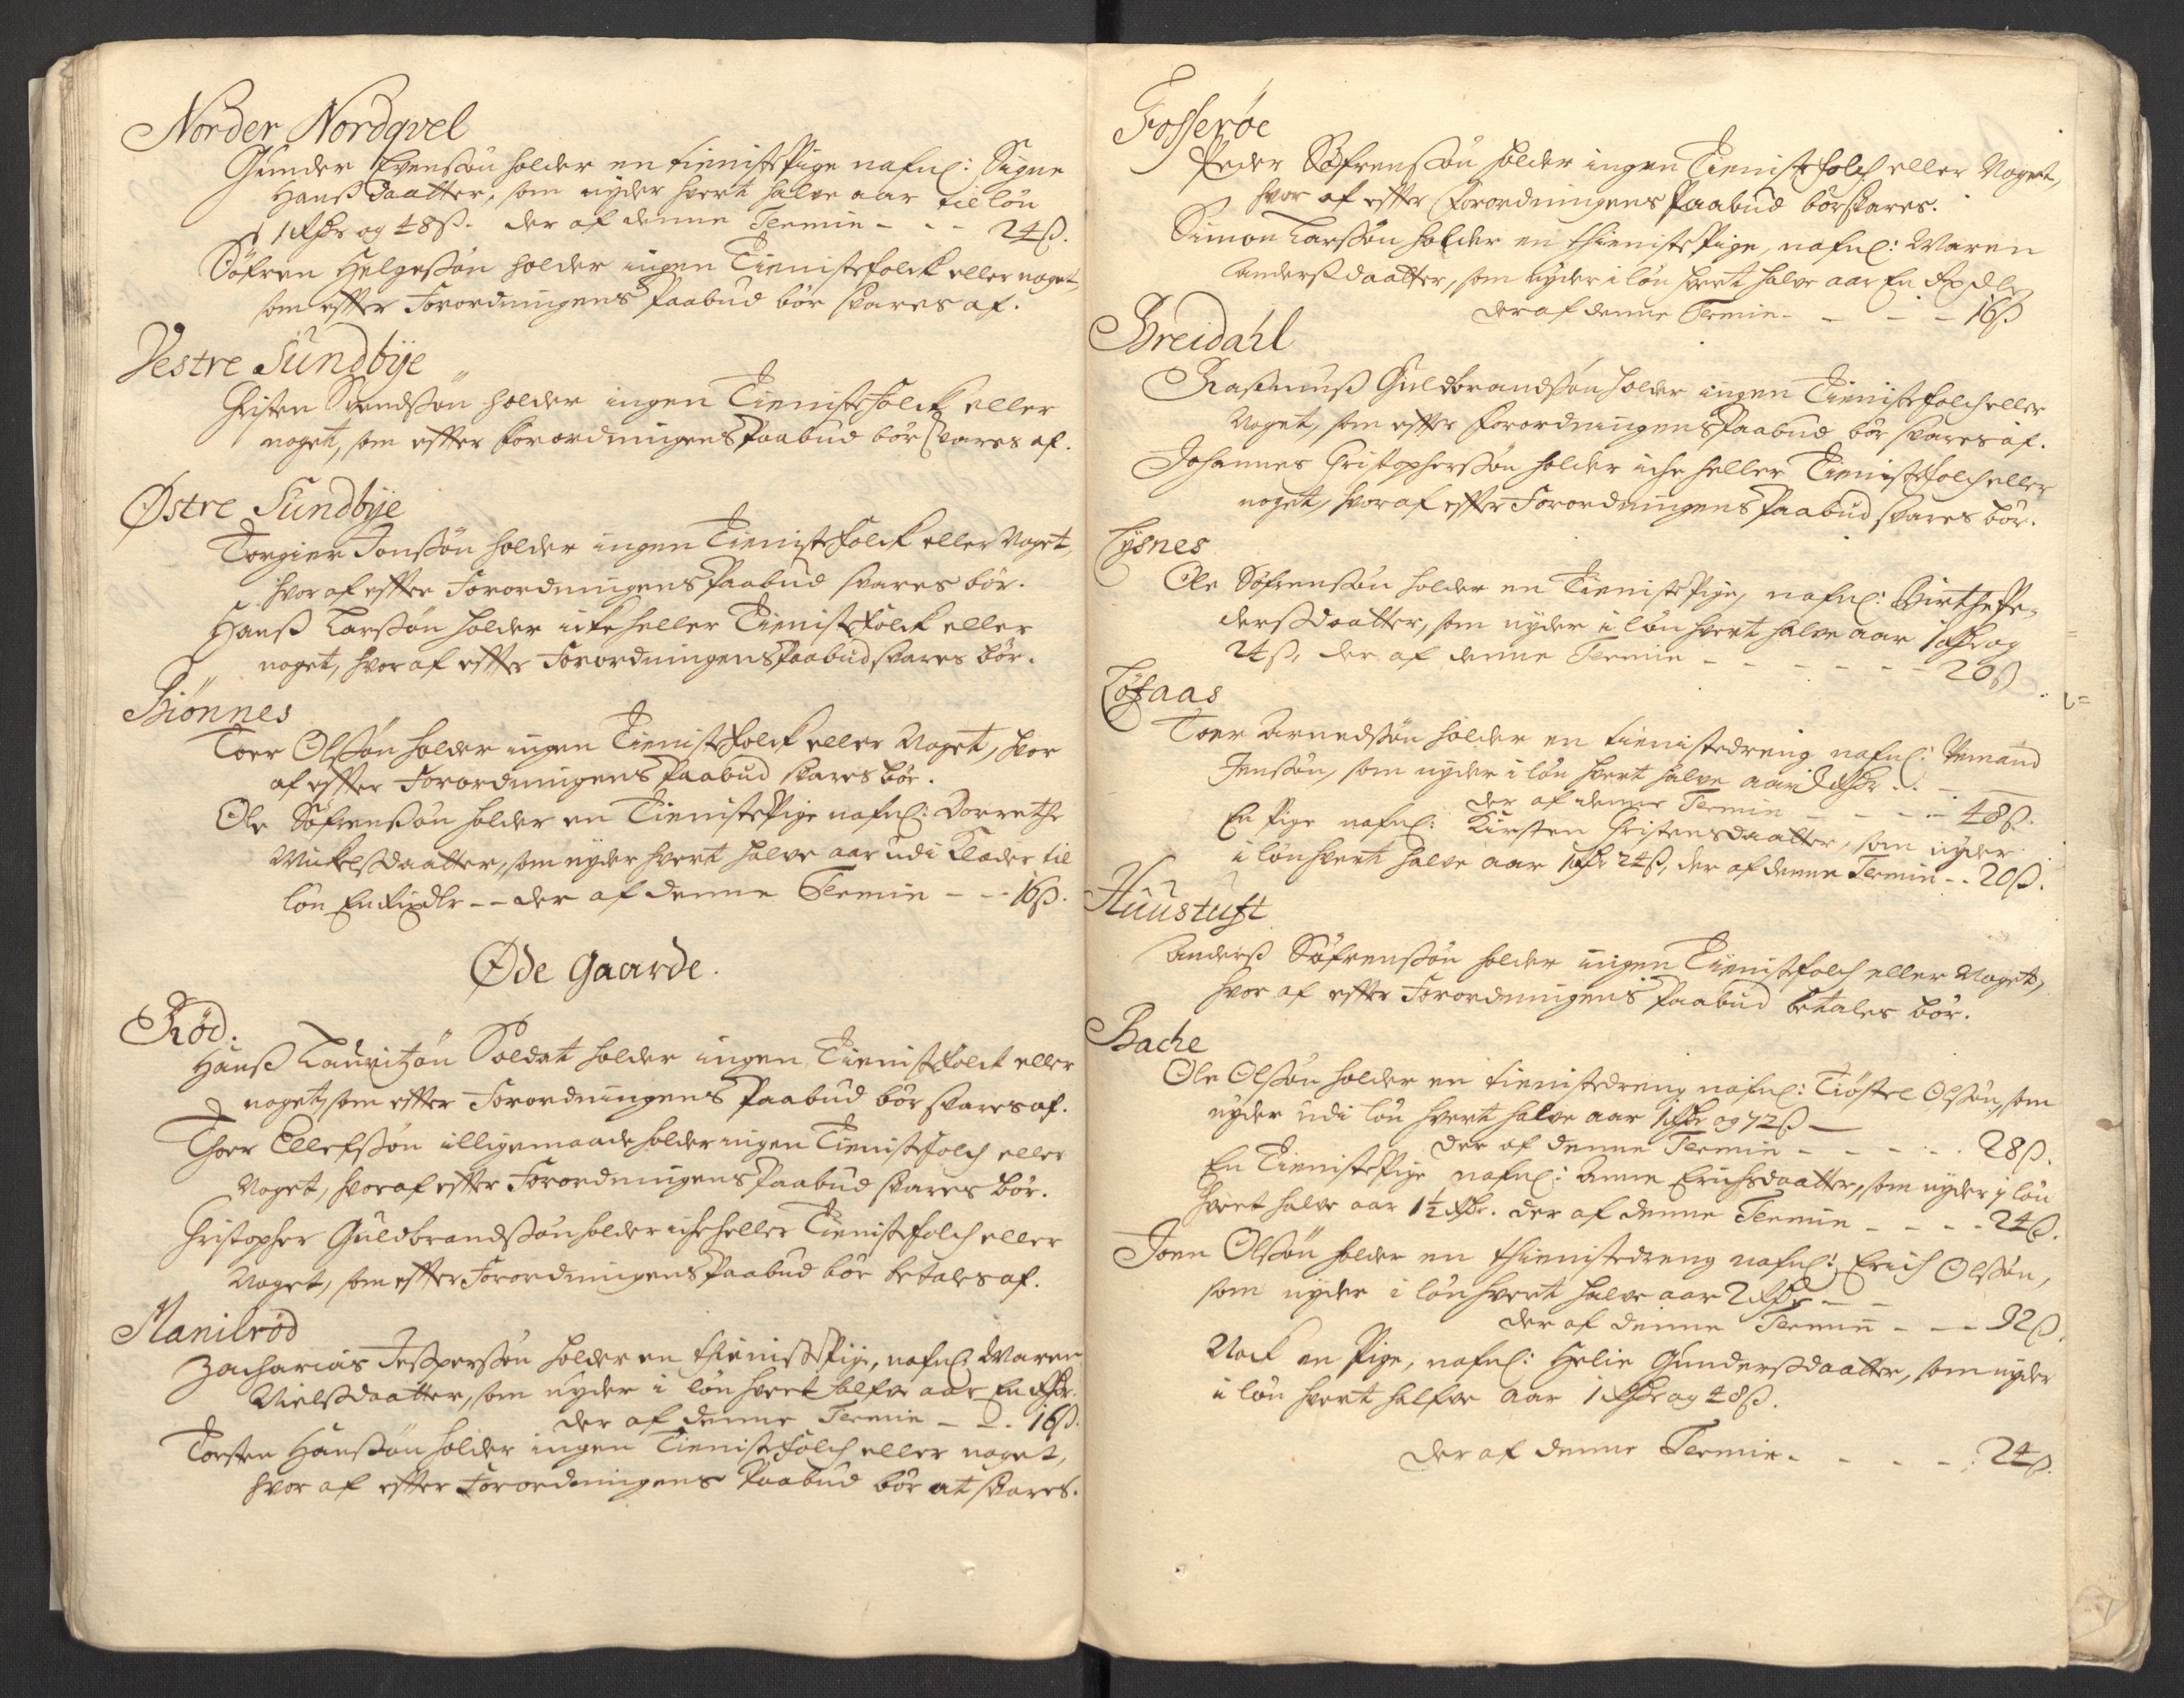 Norder Nordqvel
Gunder Evenssøn holder en tienistePige nafnl: Signe
Hanssdaatter, som nyder hvert halve aar til løn
1 Rdr og 48 ß. der af denne Termin - - - 24 ß.
Søfren Helgessøn holder ingen Tienistefolck eller noget,
som efter Forordningens Paabud bør svares af.
Vestre Sundbye
Christen Svendssøn holder ingen Tienistefolck eller
noget, som efter Forordningens Paabud bør svares af.
Østre Sundbye
Torgier Jonssøn holder ingen Tienistefolck eller Noget,
hvor af efter Forordningens Paabud svares bør.
Hanss Larssøn holder icke heller Tienistefolck eller
noget, hvor af efter Forordningens Paabud svares bør.
Biønnes
Toer Olssøn holder ingen Tienistefolck eller Noget, hvor
af efter Forordningens Paabud svares bør.
Ole Søfrenssøn holder en TienistePige nafnl: Dorrethe
Mickelssdaatter, som nyder hvert halve aar udi Klæder til
løn En Rixdlr - - der af denne Termin - - - 16 ß.
Øde Gaarde.
Rød:
Hanss Lauritzøn Soldat holder ingen Tienistefolck eller
noget, som efter Forordningens Paabud bør svares af.
Thor Ellefssøn illigemaade holder ingen Tienistefolch eller
Noget, hvor af efter Forordningens Paabud svares bør.
Christopher Guldbrandssøn holder iche heller Tienistefolch eller
Noget, som efter Forordningens Paabud bør betales af.
Manilrød
Zacharias Jesperssøn holder en thienistePige, nafnl: Maren
Nielssdaatter, som nyder i løn hvert halfve aar En Rdr.
der af denne Termin - - - 16 ß.
Torsten Hanssøn holder ingen Tienistefolch eller noget,
hvor af efter Forordningens Paabud bør at svares.
Fosserøe
Peder Søfrenssøn holder ingen Tienistefolch eller Noget,
hvor af efter Forordningens Paabud bør svares.
Simon Larssøn holder en thienistePige, nafnl: Maren
Anderssdaatter, som nyder i løn hvert halve aar En Rxdlr
der af denne Termin - - - - 16 ß
Breidahl
Rasmuss Guldbrandssøn holder ingen Tienistefolch eller
Noget, som efter Forordningens Paabud bør svares af.
Johannes Christopherssøn holder iche heller Tienistefolch eller
noget, hvor af efter Forordningens Paabud svares bør.
Lysnes
Ole Søfrenssøn holder en TienistePige, nafnl: Birthe Pe-
derssdaatter, som nyder i løn hvert halve aar 1 Rdr og
24 ß, der af denne Termin - - - - - - 20 ß
Løfaas
Toer Arnedssøn holder en tienistedreng nafnl: Amand
Jenssøn, som nyder i løn hvert halve aar 3 Rdr - - -
der af denne Termin - - - - 48 ß.
En Pige nafnl: Kirsten Christensdaatter, som nyder
i løn hvert halve aar 1 Rdr 24 ß, der af denne Termin - - 20 ß.
Huustuft
Anderss Søfrenssøn holder ingen Tienistefolch eller Noget,
hvor af efter Forordningens Paabud betales bør.
Bache
Ole Olssøn holder en tienistedreng nafnl: Tiøstel Olssøn, som
nyder udi løn hvert halve aar 1 Rdr og 72 ß -
der af denne Termin - - - - - 28 ß.
En TienistePige nafnl: Anne Erichsdaatter, som nyder i løn
hvert halve aar 1½ Rdr. der af denne Termin - - - - 24 ß.
Joen Olssøn holder en thienistedreng nafnl: Erich Olssøn,
som nyder i løn hvert halve aar 2 Rdr - -
der af denne Termin - - - 32 ß.
Nock en Pige, nafnl: Helie Gunderssdaatter, som nyder
i løn hvert halfve aar 1 Rdr og 48 ß.
der af denne Termin - - - - 24 ß.